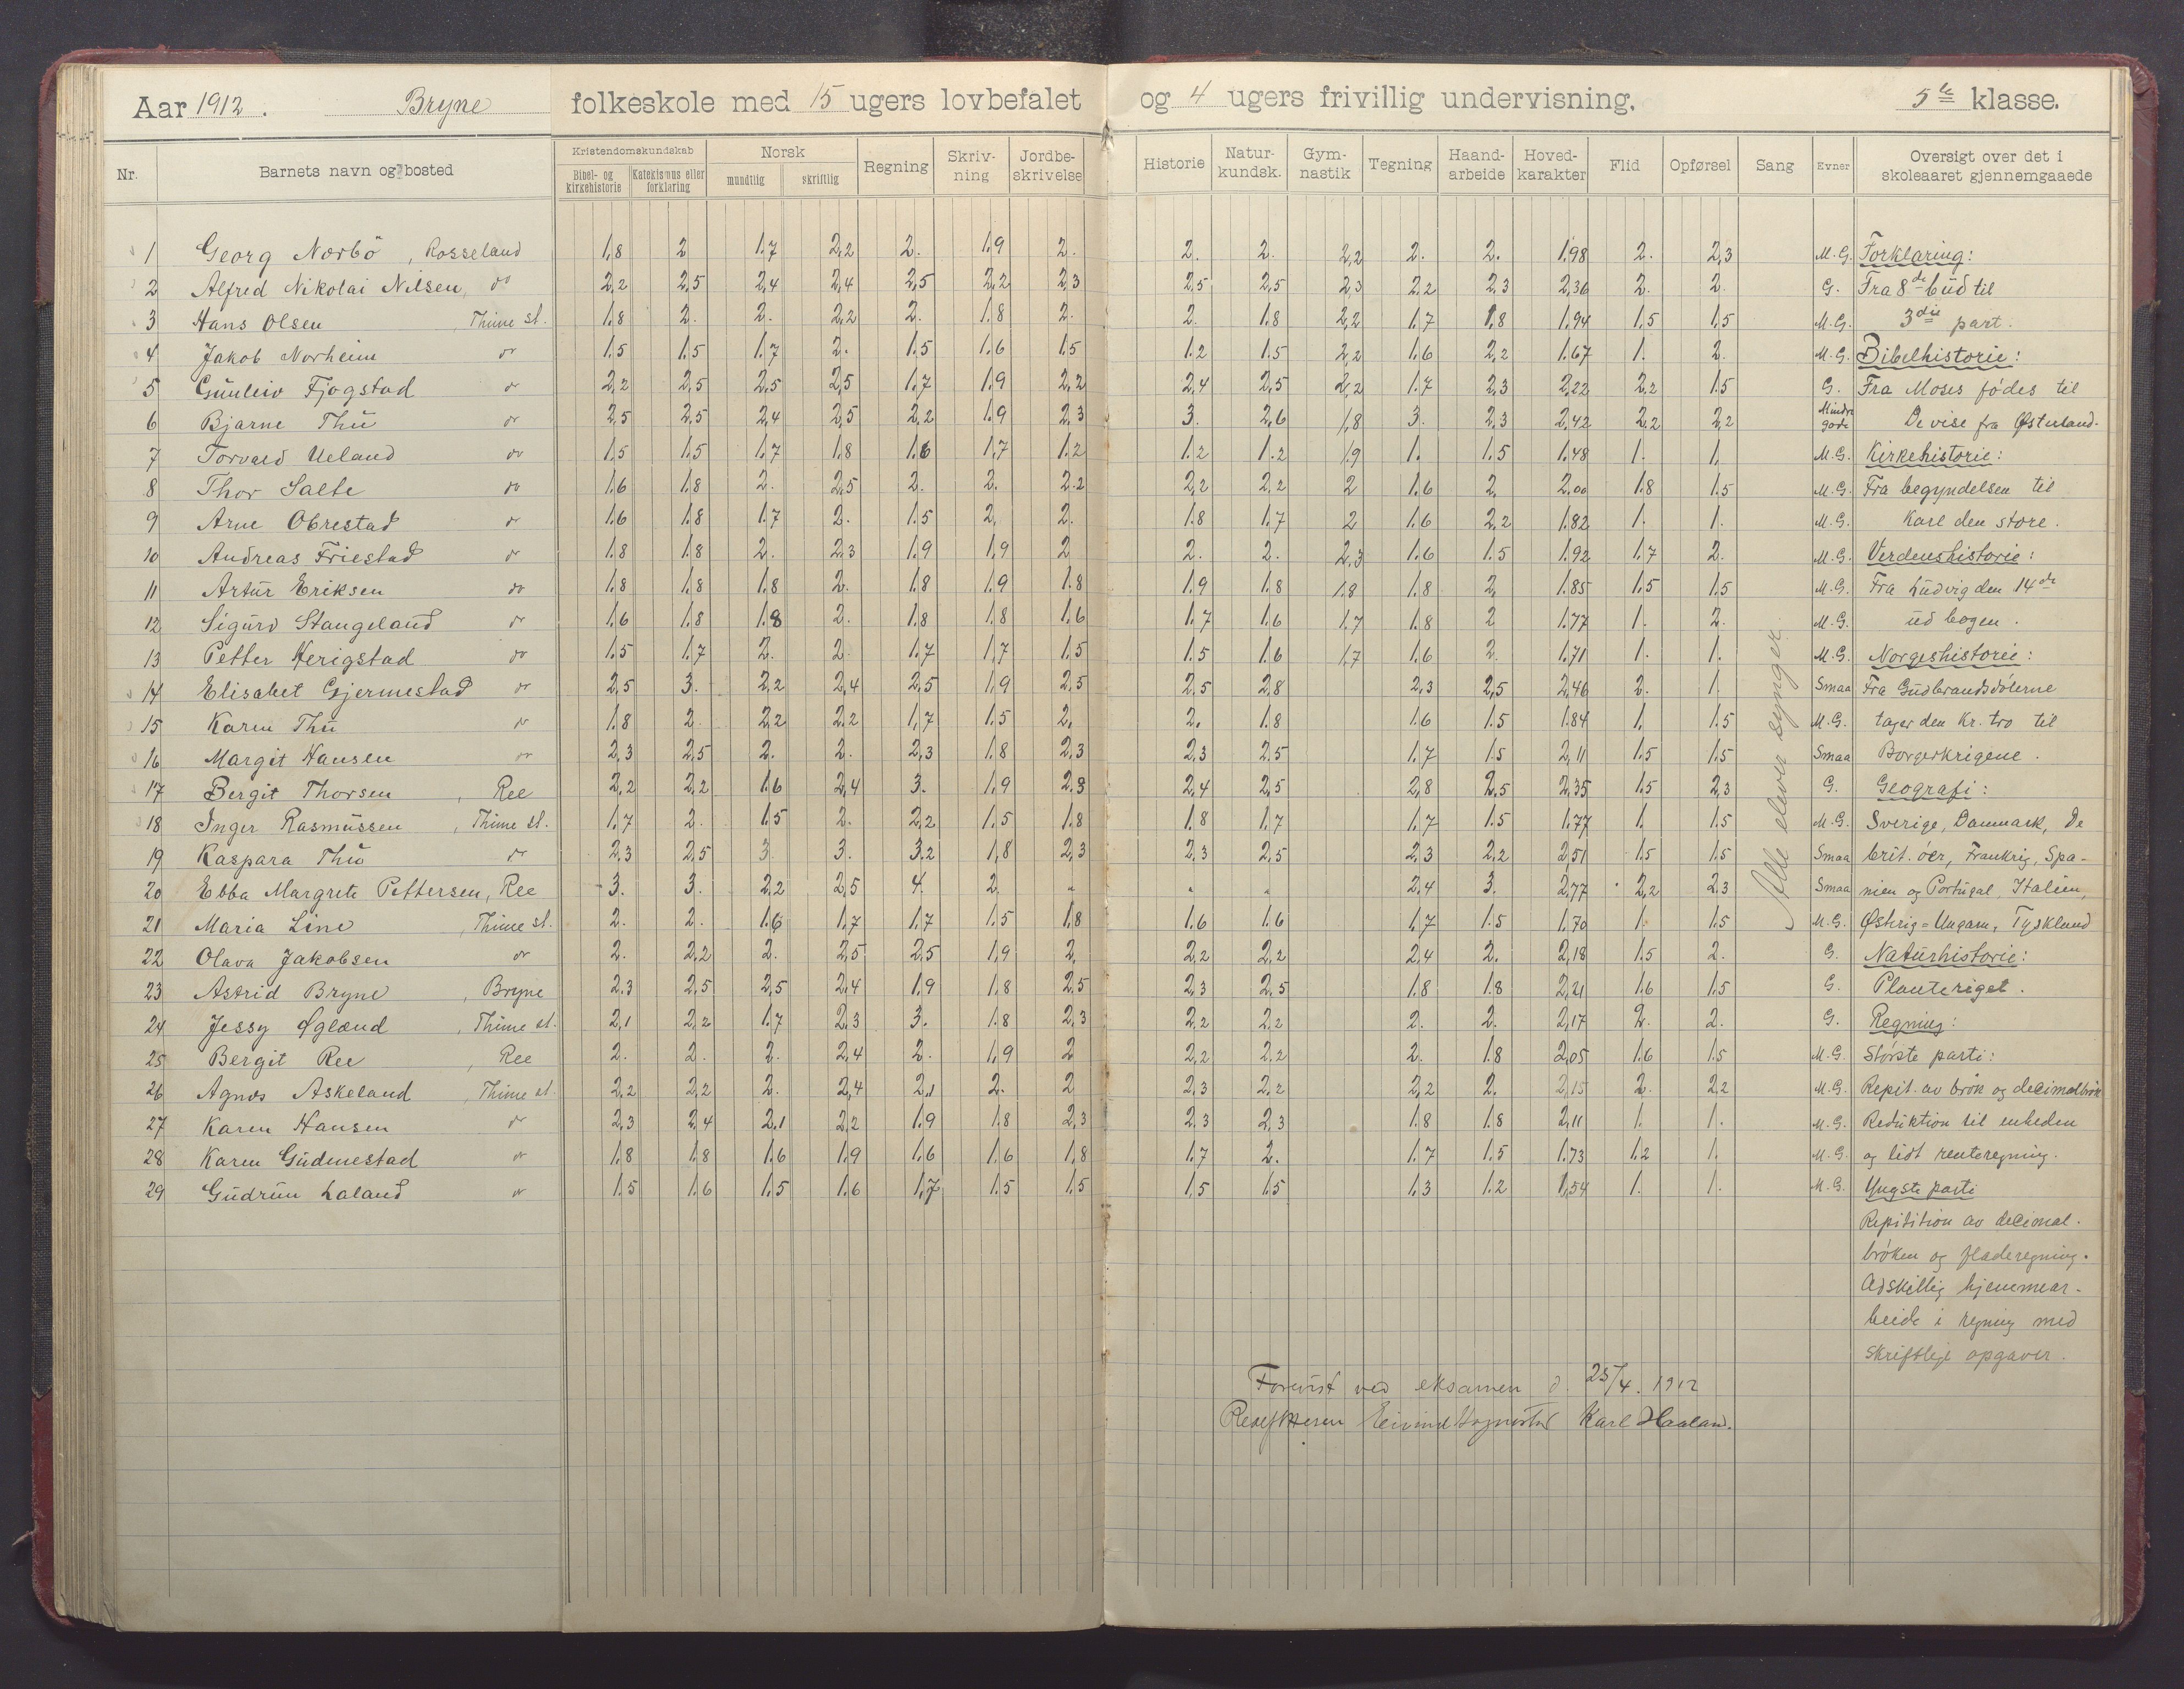 Aar 1912. Bryne folkeskole med 15 ugers lovbefalet og 4 ugers frivillig undervisning. 5te klasse.
Nr. Barnets navn og bosted Kristendomskundskab Bibel- og kirkehistorie Katekismus eller forklaring Norsk mundtlig skriftlig Regning Skriv-ning Jordbe-skrivelse Historie Natur-kundsk. Gym-nastik Tegning Haand-arbeide Hoved-karakter Flid Opførsel Sang Evner Oversigt over det i skoleaaret gjennemgaaede
1 Georg Norbö, Rosseland 1,8 2 1.7 2,2 2. 1.9 2. 2. 2. 2,2 2. 2. 1.98 2. 2,3 M.G. Forklaring:
2 Alfred Nikolai Nilsen, do 2,2 2,5 2,4 2,4 2,5 2,2 2,3 2,5 2,5 2,3 2,2 2,3 2,36 2. 2. G. Fra 8de bud til
3 Hans Olsen, Thime st. 1.8 2. 2. 2,2 2. 1.8 2. 2. 1.8 2,2 1.7 1,8 1.94 1,5 1,5 M.G. 3die part.
4 Jakob Norheim do 1.5 1.5 1.7 2. 1.5 1.6 1.5 1.2 1.5 2,2 1.6 2,2 1.67 1. 2. M.G. Bibelhistorie:
5 Gunleiv Fjogstad do 2,2 2,5 2.5 2,5 1.7 1.9 2,2 2,4 2,5 2,2 1.7 2,3 2,22 2,2 1.5 G. Fra Moses födes til
6 Bjarne Thu do 2,5 2,5 2,4 2,5 2,2 1.9 2,3 3. 2,6 1,8 3. 2,3 2,42 2,2 2,2 Mindre gode De vise fra Østerland.
7 Torvald Ueland do 1,5 1.5 1.7 1.8 1.6 1,7 1.2 1.2 1.2 1.9 1. 1.5 1.48 1. 1. M.G. Kirkehistorie:
8 Thor Salte do 1.6 1.8 2. 2,5 2. 2. 2.2 2,2 2,2 2 1.6 2. 2.00 1.8 1.5 M.G. Fra begyndelsen til
9 Arne Obrestad do 1.6 1.8 1.7 2. 1.5 2. 2. 1.8 1.7 2 1.6 2,2 1.82 1. 1. M.G. Karl den store.
10 Andreas Friestad do 1.8 1.8 2. 2.3 1.9 1,9 2 2. 2. 2,3 1.6 1.5 1.92 1.7 2. M.G. Verdenshistorie:
11 Artur Eriksen do 1.8 1.8 1.8 2. 1.8 1.9 1.8 1.9 1.8 1.8 1.8 2, 1.85 1.5 1.5 M.G. Fra Ludvig den 14de
12 Sigurd Stangeland do 1.6 1.8 1.8 2. 1.8 1.8 1.6 1.7 1.6 1.7 1.8 2 1.77 1. 2. M.G. ud bogen.
13 Petter Herigstad do 1.5 1.7 2. 2. 1.7 1,7 1.5 1.5 1.6 1,7 1.6 2. 1.71 1. 1. M.G. Norgeshistorie:
14 Elisabet Gjermestad do 2,5 3. 2,2 2,4 2,5 1,9 2,5 2,5 2,8 2,3 2,5 2,46 2. 1. Smaa Fra Gudbrandsdölerne
15 Karen Thu do 1.8 2 2,2 2.2 1,7 1.5 2. 2. 1.8 1.6 1.5 1.84 1, 1.5 M.G. tager den kr. tro til
16 Margit Hansen do 2,3 2,5 2. 2. 2,3 1.8 2,3 2,3 2,5 1.7 1.5 2,11 1.5 1.5 Smaa Borgerkrigene.
17 Bergit Thorsen, Ree 2,2 2,2 1.6 2,4 3. 1.9 2.3 2,4 2,5 2,8 2,5 2,35 1.5 2,3 G. Geografi:
18 Inger Rasmussen, Thime st. 1.7 2. 1.5 2. 2,2 1.5 1.8 1.8 1.7 1.7 1.5 1.77 1. 1.5 M.G. Sverige, Danmark, De
19 Kaspara Thu do 2,3 2,5 3. 3. 3.2 1,8 2,3 2,3 2,5 2,3 2,2 2,51 1.5 1.5 Smaa brit. öer, Frankrig, Spa-
20 Ebba Margrete Pettersen, Ree 3. 3. 2,2 2,5 4. 2. " " " 2,4 3. 2,77 2,2 2,3 Smaa nien og Portugal, Italien,
21 Maria Line, Thime st. 2. 2. 1.6 1,7 1.7 1.5 1,8 1.6 1.6 1.7 1.5 1.70 1. 1.5 M.G. Østrig=Ungarn, Tyskland
22 Olava Jakobsen do 2. 2,2 2. 2,5 2,5 1,9 2, 2,2 2,2 2,4 2. 2,18 1.5 2. G. Naturhistorie:
23 Astrid Bryne, Bryne 2.3 2,5 2,5 2,4 1.9 1.8 2,5 2,3 2,5 1.8 1.8 2,21 1.6 1.5 G. Planteriget.
24 Jessy Øgland, Thime st. 2,1 2,2 1.7 2,3 3. 1.8 2,3 2,2 2,2 2. 2. 2,17 2. 2. G. Regning:
25 Bergit Ree, Ree 2. 2. 2. 2,4 2. 1,9 2 2,2 2,2 2. 1.8 2,05 1.6 1.5 M.G. Störste parti:
26 Agnes Askeland, Thime st. 2,2 2,2 2. 2,4 2,1 2. 2 2,3 2,2 2,2 2. 2,15 2. 2,2 M.G. Repit. av brök og decimalbrök
27 Karen Hansen do 2,3 2,4 2.1 2,2 1.9 1.8 2,3 2.3 2,3 1.8 1.8 2,11 1. 1. M.G. Reduktion til enheden
28 Karen Gudmestad do 1.8 1.8 1.6 1.9 1,6 1,6 1,8 1.7 2. 1.7 1.5 1.73 1.2 1. M.G. og lidt renteregning.
29 Gudrun Laland do 1.5 1.6 1.5 1.6 1,7 1.5 1.5 1,5 1.5 1.3 1.2 1,54 1. 1. M.G. Yngste parti
Alle elever synger.
Repitition av decimal.
bröken og fladeregning.
Adskillig hjemmear-
beide i regning med
skriftlige opgaver.
Forevist ved eksamen d. 25/4. 1912
Eivind Karl Haaland.